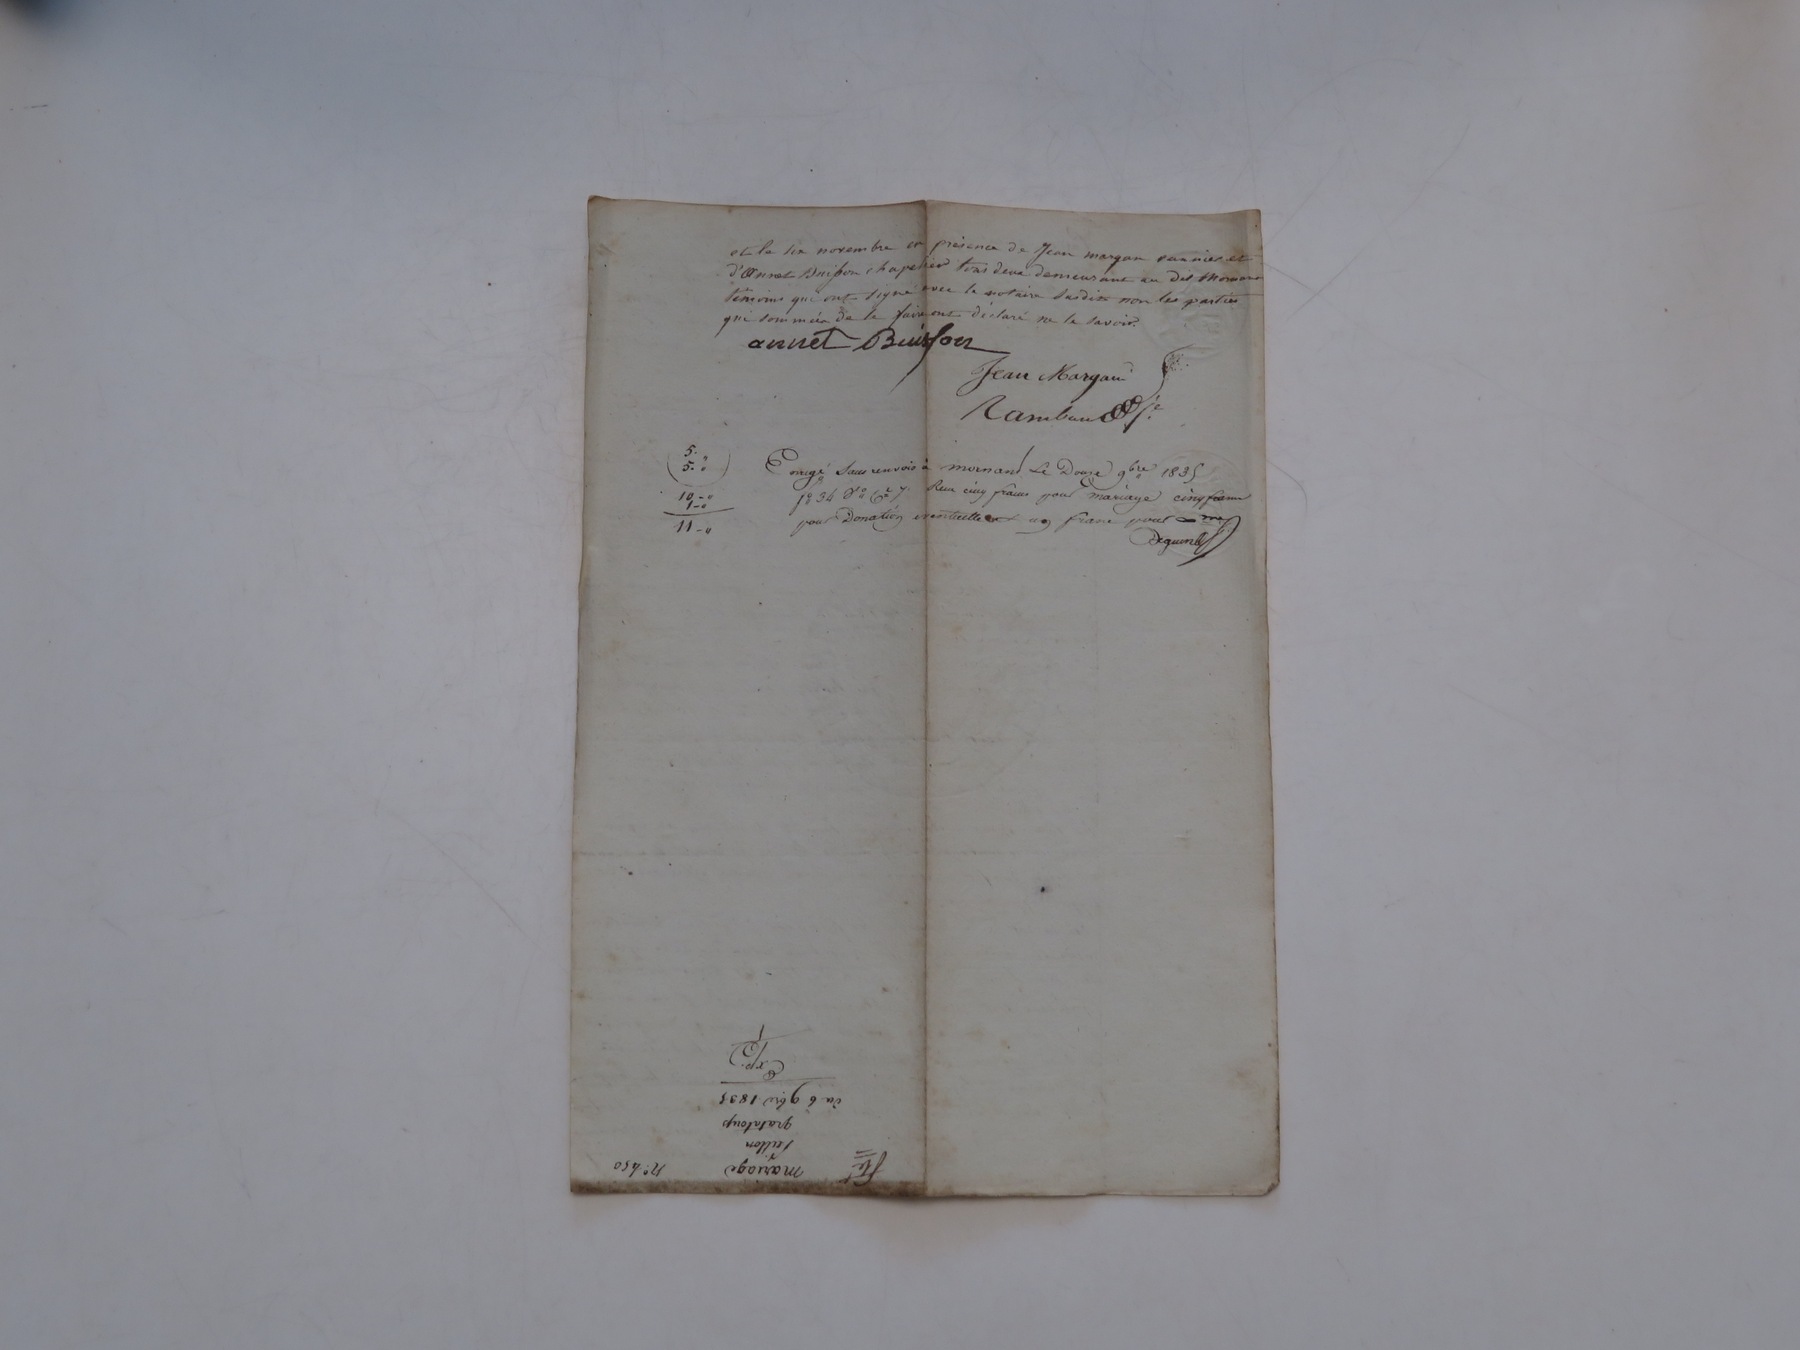 et le six novembre en présence de Jean margan vannier et
d'annet Buisson chapelier tous deux demeurant au dit Mornant
témoins qui ont signé avec le notaire susdit non les parties
qui sommées de le faire ont déclaré ne le savoir.
annet Buisson
Jean Margan
Rambaud
5-"
5-"
10-"
1-"
11-"
Enregé sans renvois à mornant Le Douze 9bre 1835
fo 34 Vo Ce 7. Reçu cinq francs pour mariage cinq francs
pour Donation eventuelle et un franc pour
No 450
mariage
feillon
gratatoup
du 6 9bre 1835
Exp.
1